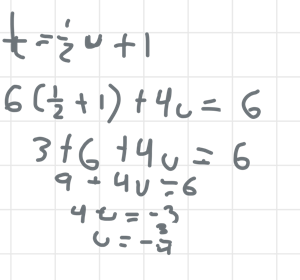 t = 1/2 u + 1
6 (1/2 + 1) + 4u = 6
3 + 6 + 4u = 6
9 + 4u = 6
4u = -3
u = -3/4